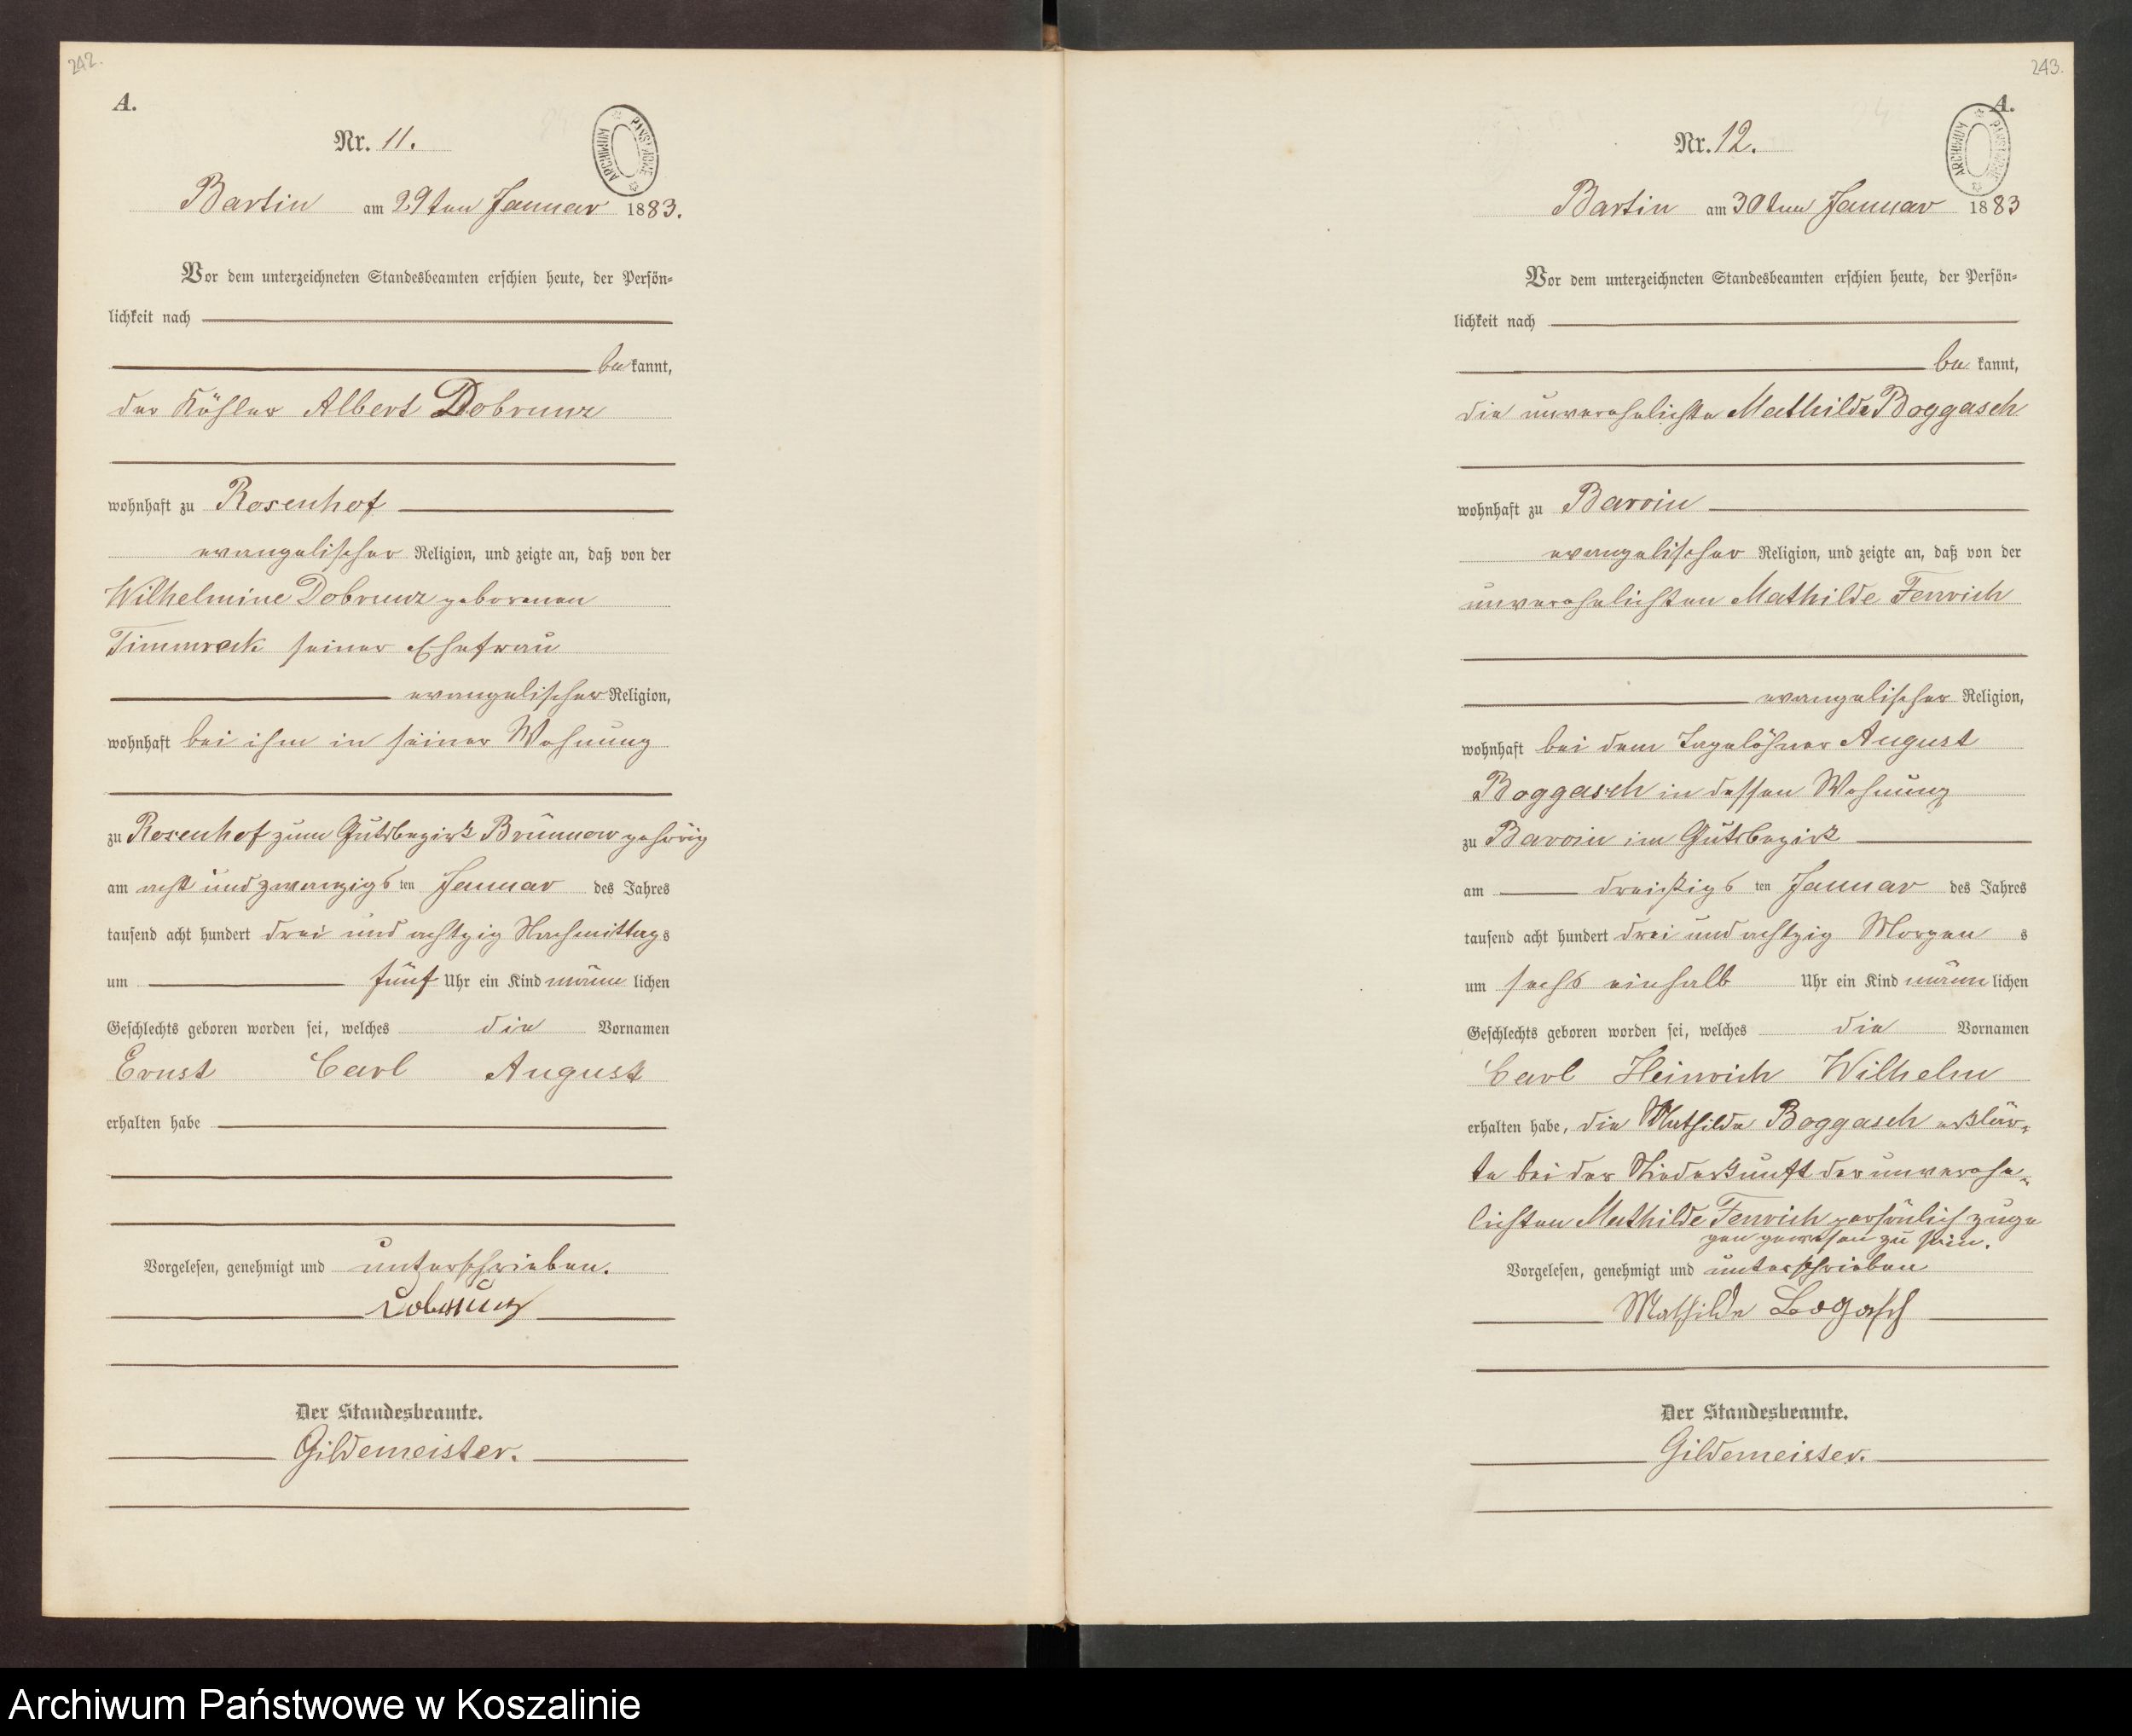 242.
A.
Nr. 11.
ARCHIWUM PAŃSTWOWE
Bartin am 29ten Januar 1883.
Vor dem unterzeichneten Standesbeamten erschien heute, der Persön-
lichkeit nach
bekannt,
der Käthner Albert Dobrunz
wohnhaft zu Rosenhof
evangelischer Religion, und zeigte an, daß von der
Wilhelmine Dobrunz geborenen
Timmreck seiner Ehefrau
evangelischer Religion,
wohnhaft bei ihm in seiner Wohnung
zu Rosenhof zum Gutsbezirk Brünnow gehörig
am acht und zwanzigsten Januar des Jahres
tausend acht hundert drei und achtzig Nachmittags
um fünf Uhr ein Kind männlichen
Geschlechts geboren worden sei, welches die Vornamen
Ernst Carl August
erhalten habe
Vorgelesen, genehmigt und unterschrieben.
Dobrunz
Der Standesbeamte.
Gildemeister.
243.
A.
Nr. 12.
ARCHIWUM PAŃSTWOWE
Bartin am 30ten Januar 1883
Vor dem unterzeichneten Standesbeamten erschien heute, der Persön-
lichkeit nach
bekannt,
die unverehelichte Mathilde Boggasch
wohnhaft zu Barvin
evangelischer Religion, und zeigte an, daß von der
unverehelichten Mathilde Fenrich
evangelischer Religion,
wohnhaft bei dem Tagelöhner August
Boggasch in dessen Wohnung
zu Barvin im Gutsbezirk
am dreißigsten Januar des Jahres
tausend acht hundert drei und achtzig Morgens
um sechs einhalb Uhr ein Kind männlichen
Geschlechts geboren worden sei, welches die Vornamen
Carl Heinrich Wilhelm
erhalten habe, die Mathilde Boggasch erklär-
te bei der Niederkunft der unverehe-
lichten Mathilde Fenrich persönlich zuge
gen gewesen zu sein.
Vorgelesen, genehmigt und unterschrieben
Mathilde Bogasch
Der Standesbeamte.
Gildemeister.
Archiwum Państwowe w Koszalinie